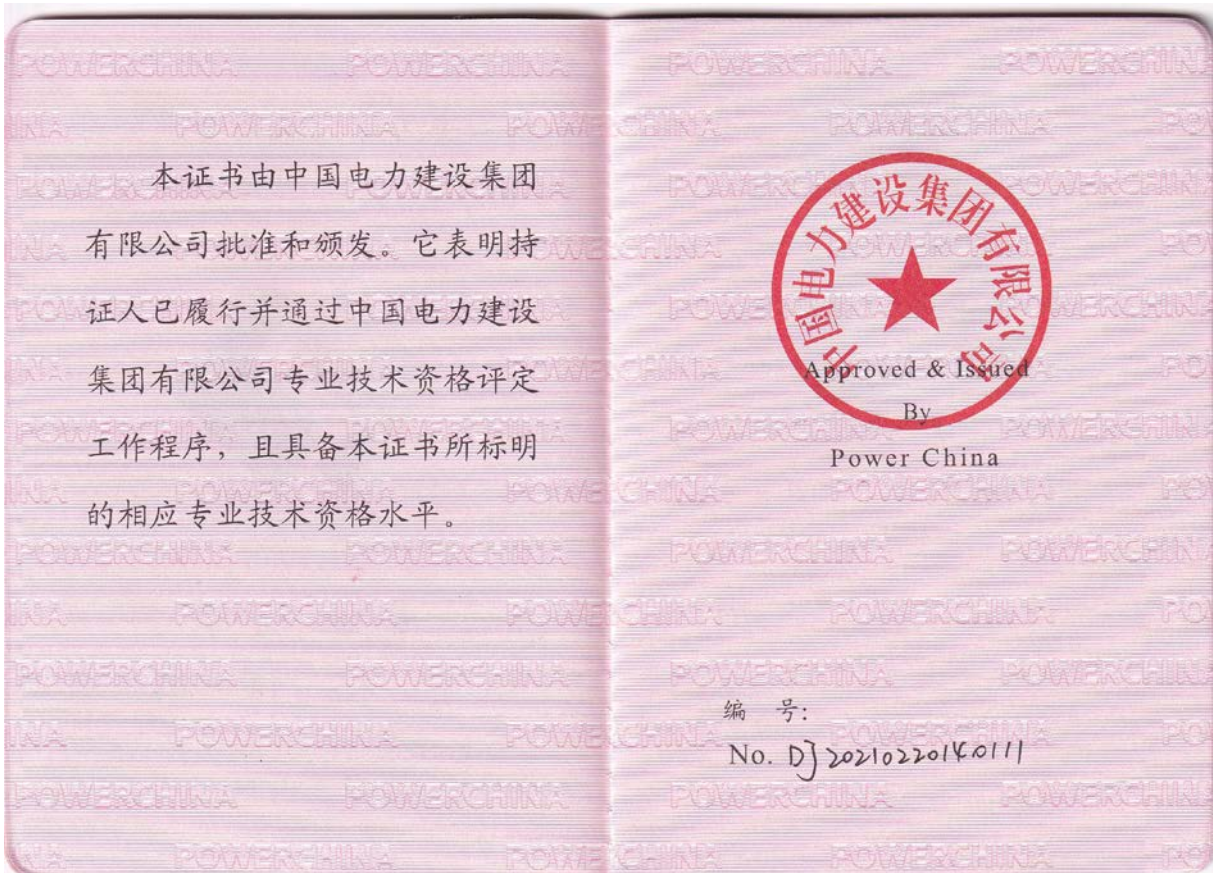 本证书由中国电力建设集团
有限公司批准和颁发。它表明持
证人已履行并通过中国电力建设
集团有限公司专业技术资格评定
工作程序，且具备本证书所标明
的相应专业技术资格水平。
中国电力建设集团有限公司
Approved & Issued
By
Power China
编 号:
No. DJ20210220140111